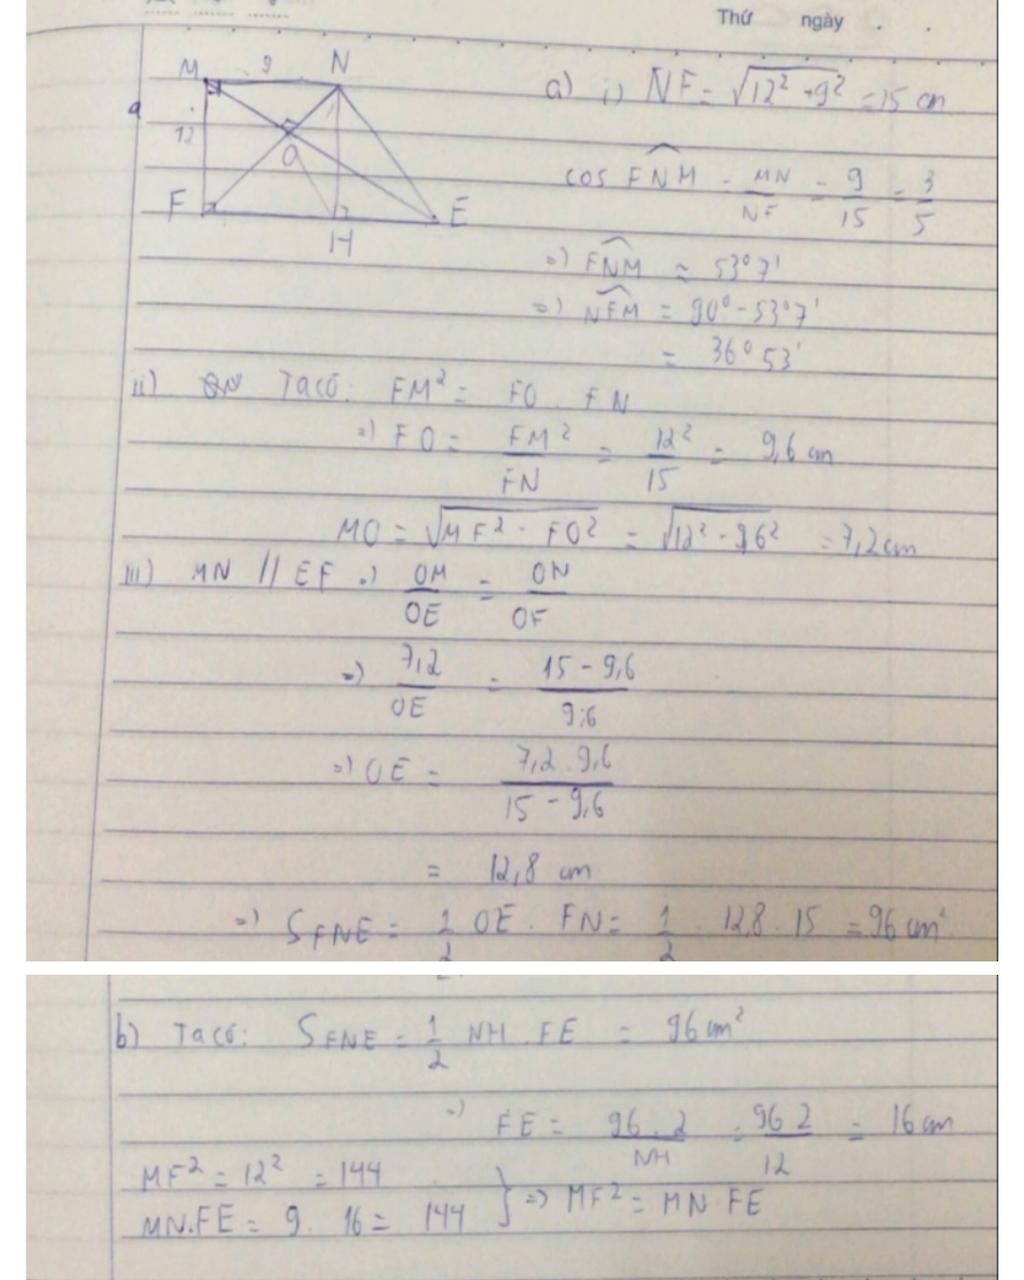 Thứ ngày . .
M 9 N
12
O
F H E
a) i) NF = √12² + 9² = 15 cm
cos FNM = MN/NF = 9/15 = 3/5
=> FNM ≈ 53°7'
=> NFM = 90° - 53°7'
= 36°53'
ii) Ta có: FM² = FO . FN
=> FO = FM²/FN = 12²/15 = 9,6 cm
MO = √MF² - FO² = √12² - 9,6² = 7,2 cm
iii) MN // EF => OM/OE = ON/OF
=> 7,2/OE = 15 - 9,6/9,6
=> OE = 7,2 . 9,6/15 - 9,6
= 12,8 cm
=> S FNE = 1/2 OE . FN = 1/2 . 12,8 . 15 = 96 cm²
b) Ta có: S FNE = 1/2 NH . FE = 96 cm²
=> FE = 96 . 2/NH = 96 . 2/12 = 16 cm
MF² = 12² = 144
MN.FE = 9 . 16 = 144 } => MF² = MN . FE